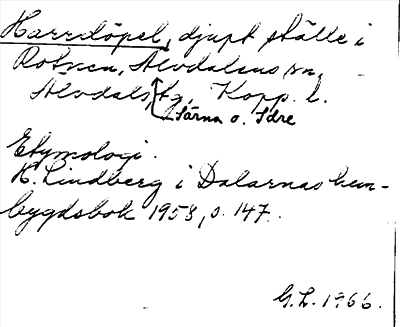 Harrdöpel, djupt ställe i
Rotnen, Älvdalens sn,
Älvdals, tg, Kopp. l.
Särna o. Idre
Etymologi.
K. Lindberg i Dalarnas hem-
bygdsbok 1958, s. 147.
G. L. 1966.